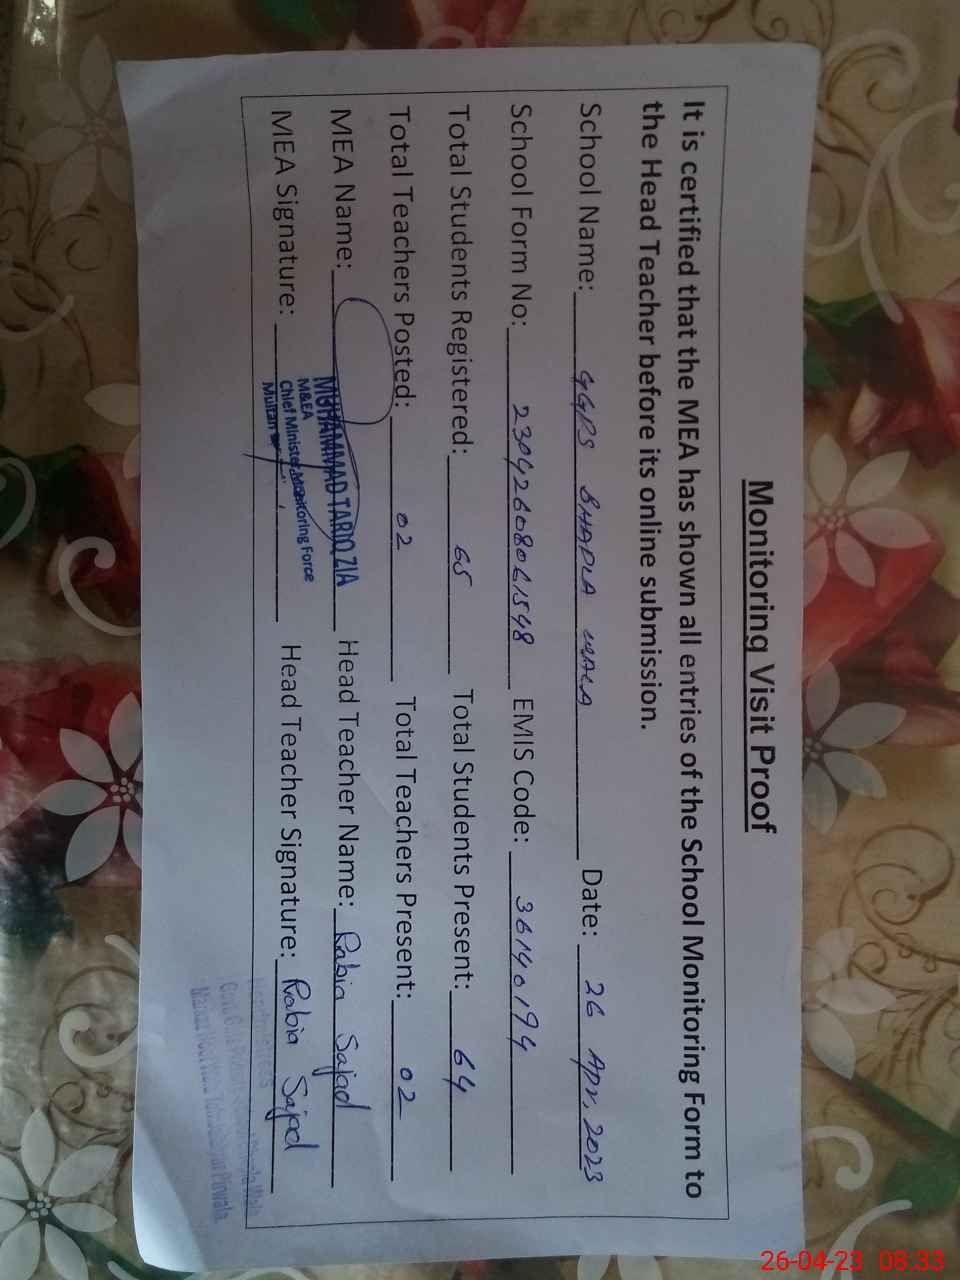 Monitoring Visit Proof
It is certified that the MEA has shown all entries of the School Monitoring Form to
the Head Teacher before its online submission.
School Name: GGPS BHAPLA WALA Date: 26 Apr, 2023
School Form No: 23042608061548 EMIS Code: 36140194
Total Students Registered: 65 Total Students Present: 64
Total Teachers Posted: 02 Total Teachers Present: 02
MEA Name: MUHAMMAD TARIQ ZIA Head Teacher Name: Rabia Sajad
M&EA
Chief Minister Monitoring Force
Multan
MEA Signature: Head Teacher Signature: Rabia Sajad
26-04-23 08:33